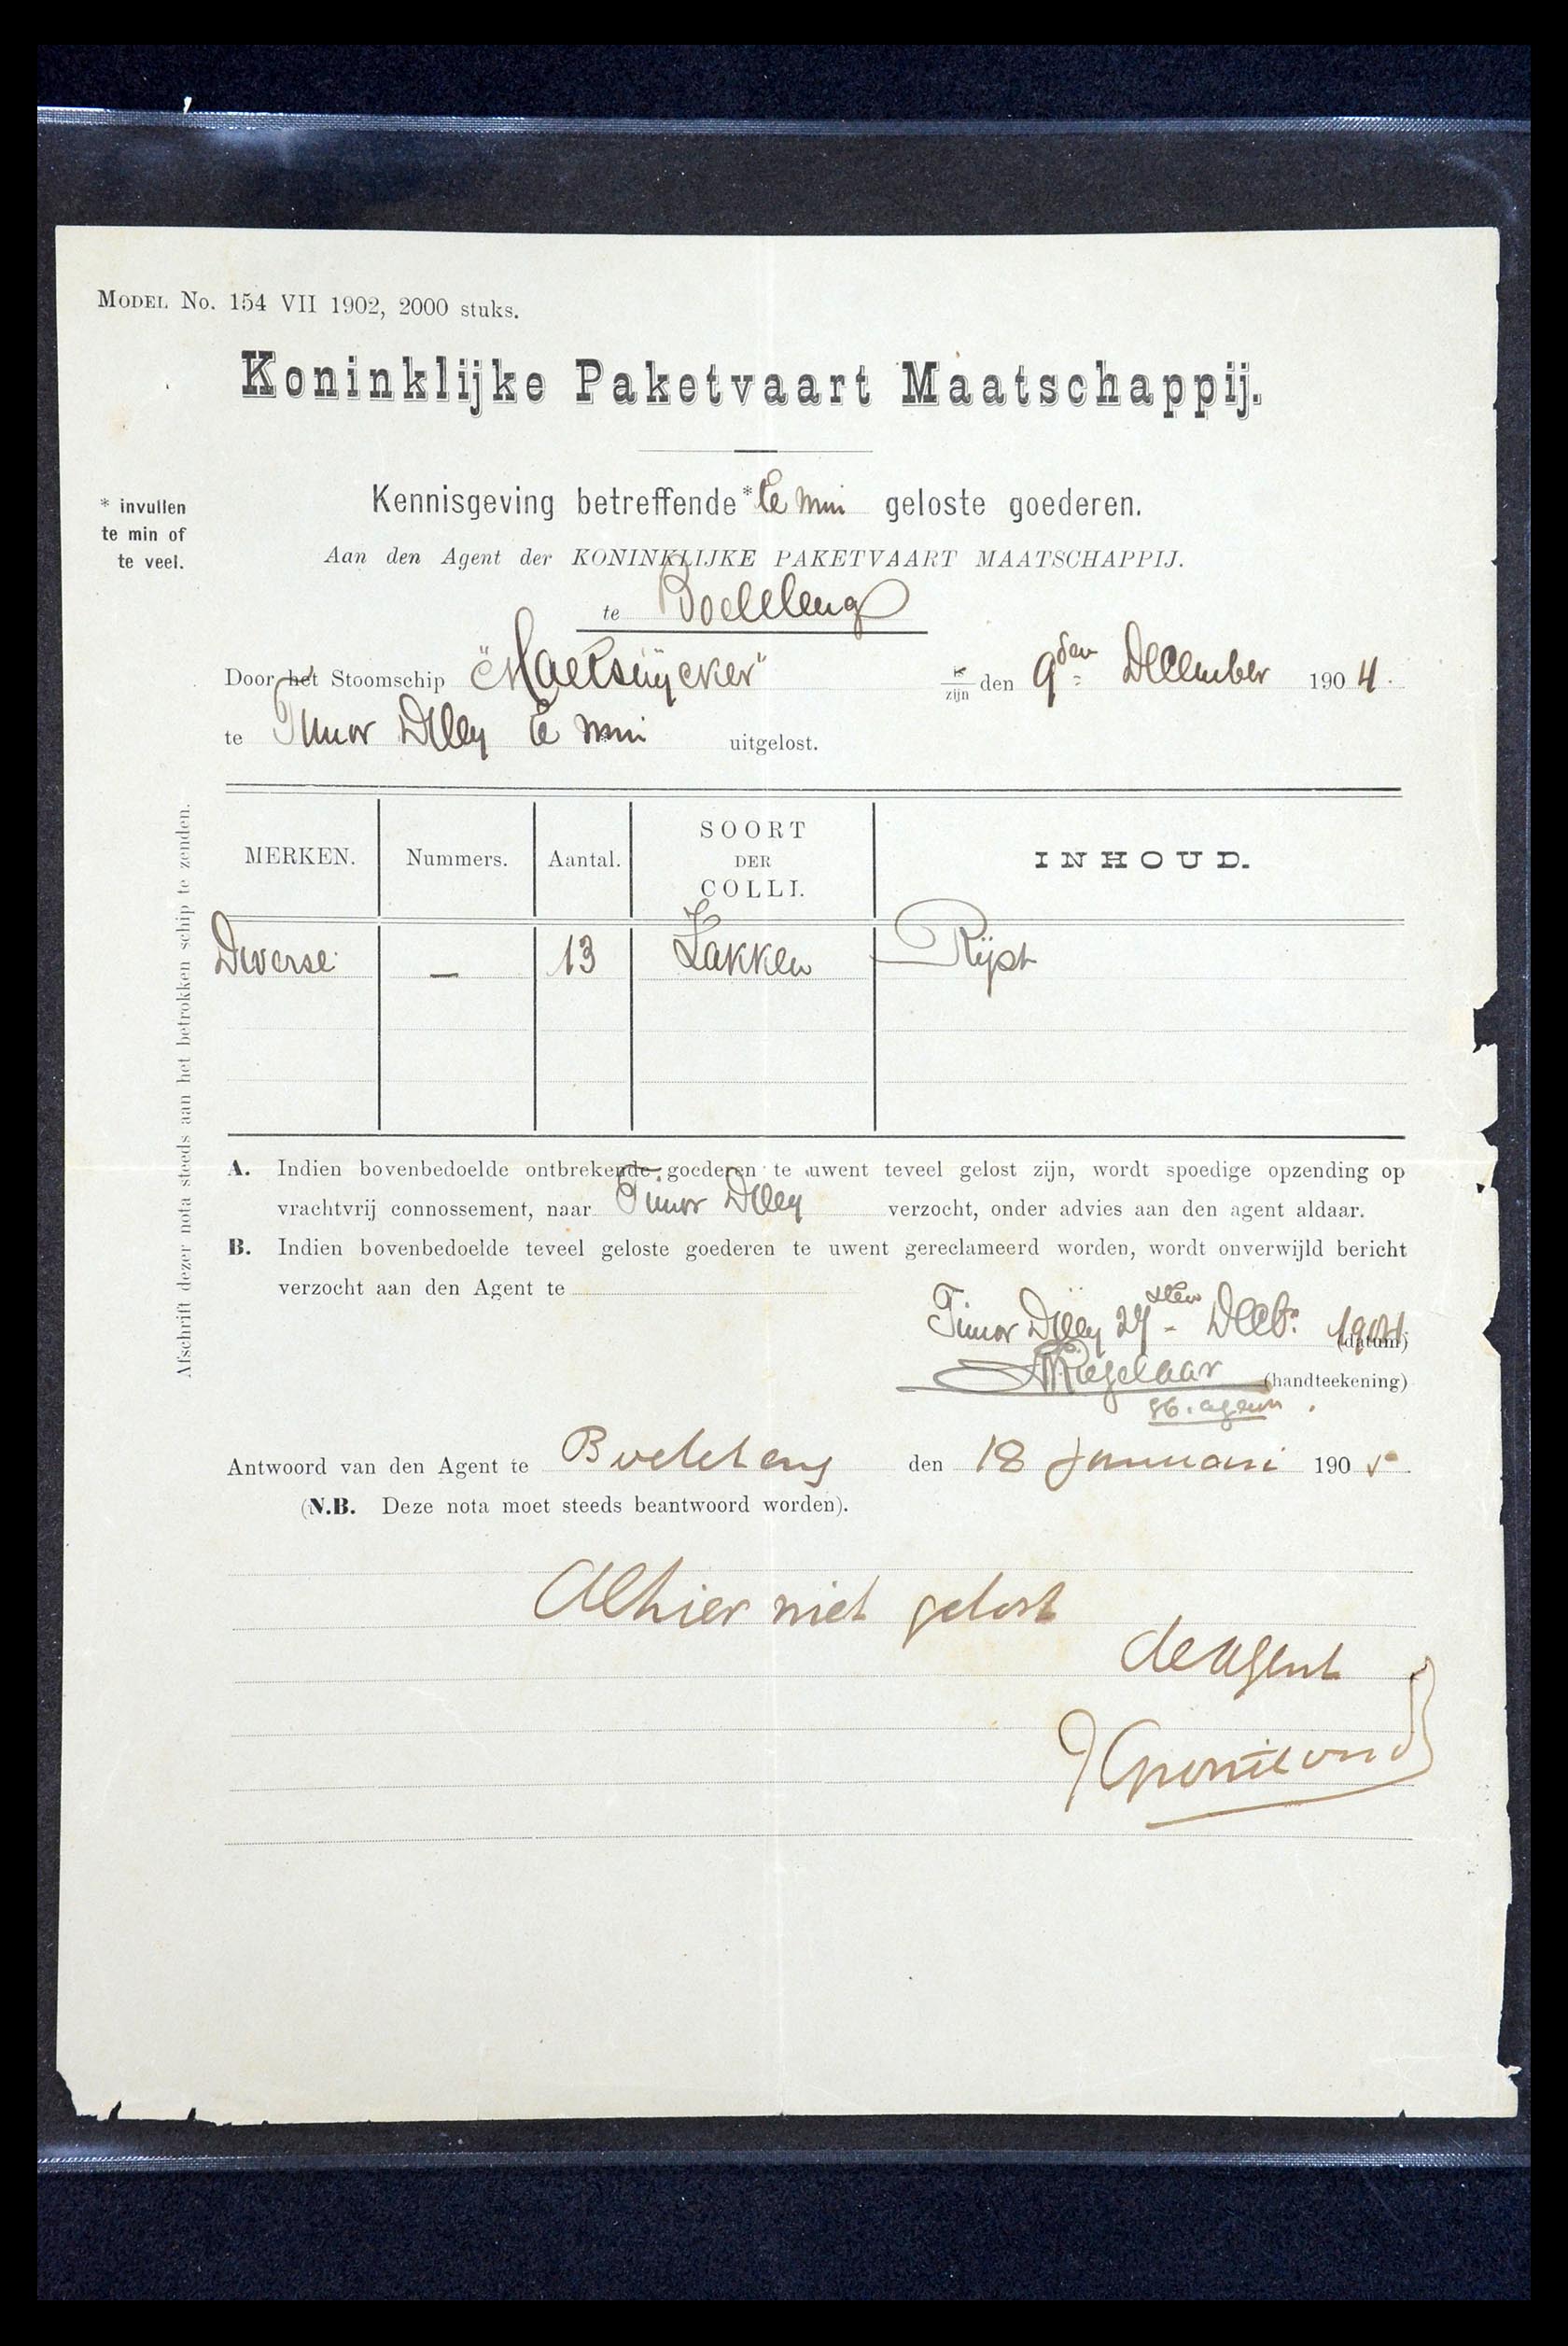 MODEL No. 154 VII 1902, 2000 stuks.
Koninklijke Paketvaart Maatschappij.
* invullen
te min of
te veel.
Kennisgeving betreffende * te min geloste goederen.
Aan den Agent der KONINKLIJKE PAKETVAART MAATSCHAPPIJ.
te Boeleleng
Door het Stoomschip "Maetsuÿcker" is/zijn den 9den December 1904.
te Timor Dilly te min uitgelost.
MERKEN. Nummers. Aantal. SOORT DER COLLI. INHOUD.
Diverse — 13 Zakken Rijst
A. Indien bovenbedoelde ontbrekende goederen te uwent teveel gelost zijn, wordt spoedige opzending op
vrachtvrij connossement, naar Timor Dilly verzocht, onder advies aan den agent aldaar.
B. Indien bovenbedoelde teveel geloste goederen te uwent gereclameerd worden, wordt onverwijld bericht
verzocht aan den Agent te
Timor Dilly Decb. 1904 (datum)
(handteekening)
Antwoord van den Agent te Boeleleng den 18 Januari 1905
(N.B. Deze nota moet steeds beantwoord worden).
Alhier niet gelost
de Agent
Afschrift dezer nota steeds aan het betrokken schip te zenden.